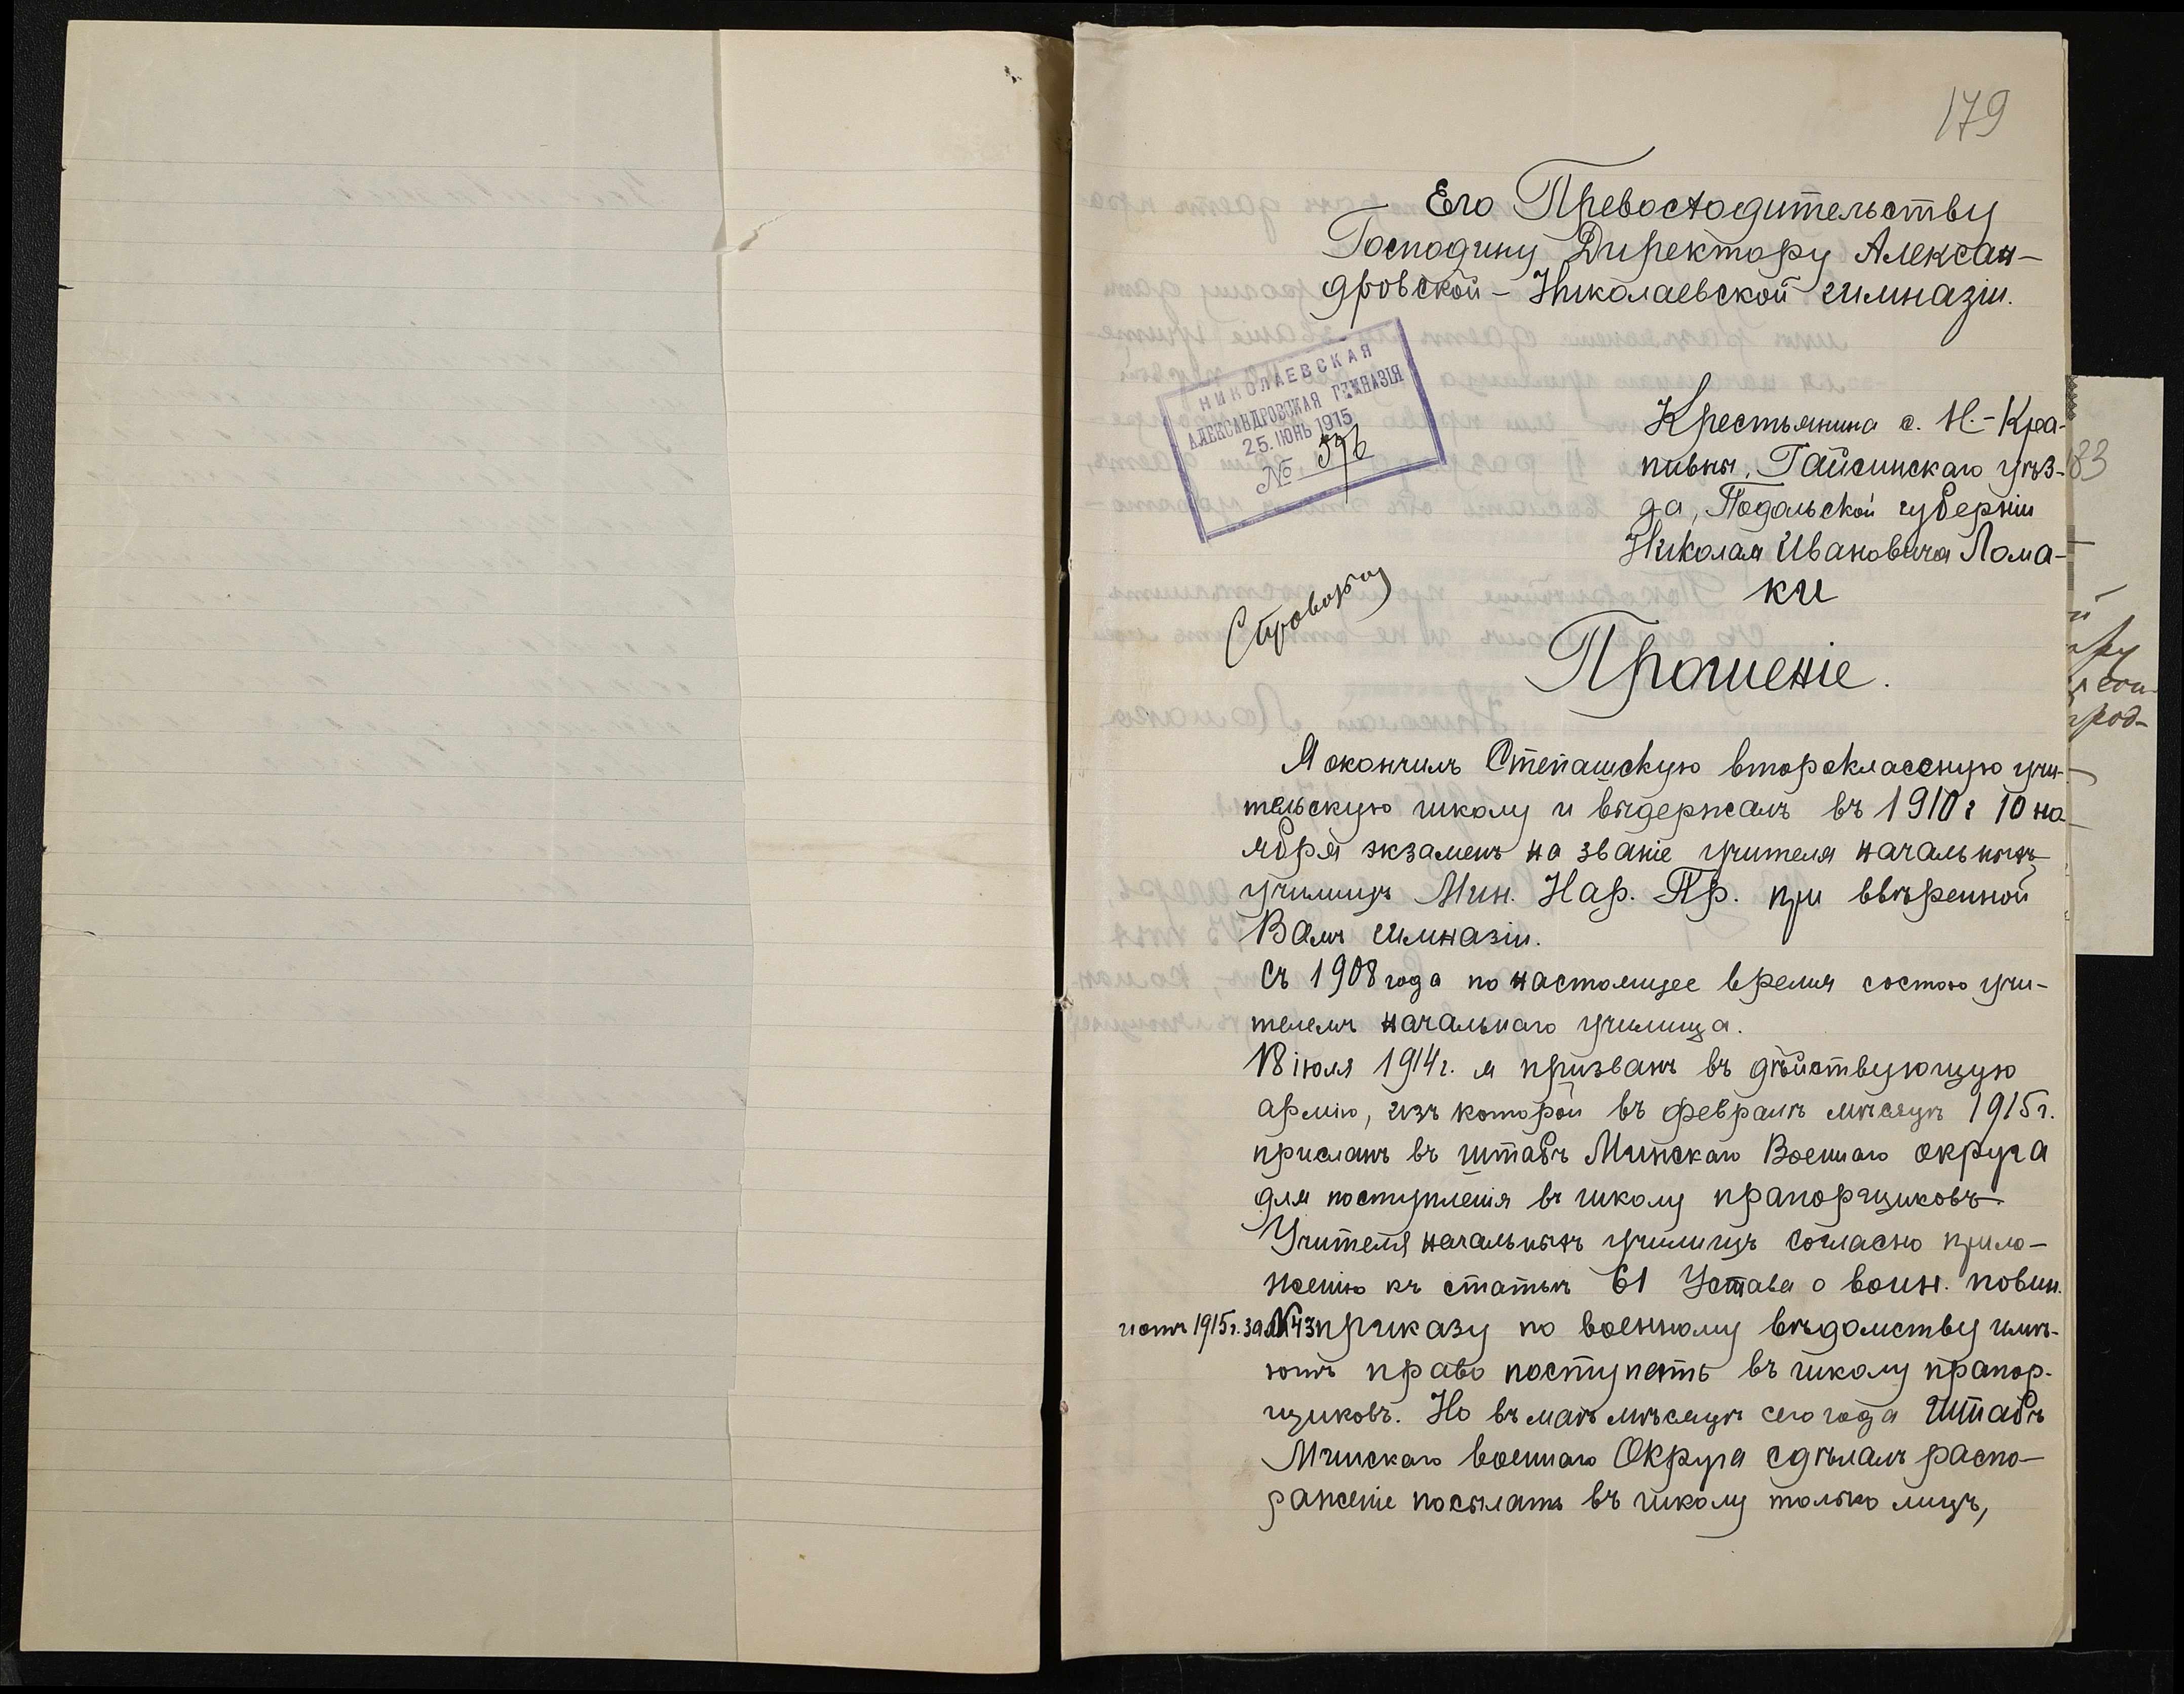 179
Его Превосходительству
Господину Директору Алексан-
дровской-Николаевской гимназіи.
НИКОЛАЕВСКАЯ
АЛЕКСАНДРОВСКАЯ ГИМНАЗІЯ
25. ІЮНЬ 1915
№ 596
Крестьянина с. Н.-Кра-
пивны, Гайсинскаго уѣз-
да, Подольской губерніи
Николая Ивановича Лома-
ки
Прошеніе.
Я окончилъ Степашскую второклассную учи-
тельскую школу и выдержалъ въ 1910 г 10 но-
ября экзаменъ на званіе учителя начальныхъ
училищъ Мин. Нар. Пр. при ввѣренной
Вамъ гимназіи.
Съ 1908 года по настоящее время состою учи-
телемъ начальнаго училища.
18 іюля 1914 г. я призванъ въ дѣйствующую
армію, изъ которой въ февралѣ мѣсяцѣ 1915 г.
присланъ въ штабъ Минскаго Военнаго округа
для поступленія въ школу прапорщиковъ.
Учителя начальныхъ училищъ согласно прило-
женію къ статьѣ 61 Устава о воин. повин.
и отъ 1915 г. за № 43 приказу по военному вѣдомству имѣ-
ютъ право поступать въ школу прапор-
щиковъ. Но въ маѣ мѣсяцѣ сего года Штабъ
Минскаго военнаго Округа сдѣлалъ распо-
ряженіе посылать въ школу только лицъ,
83